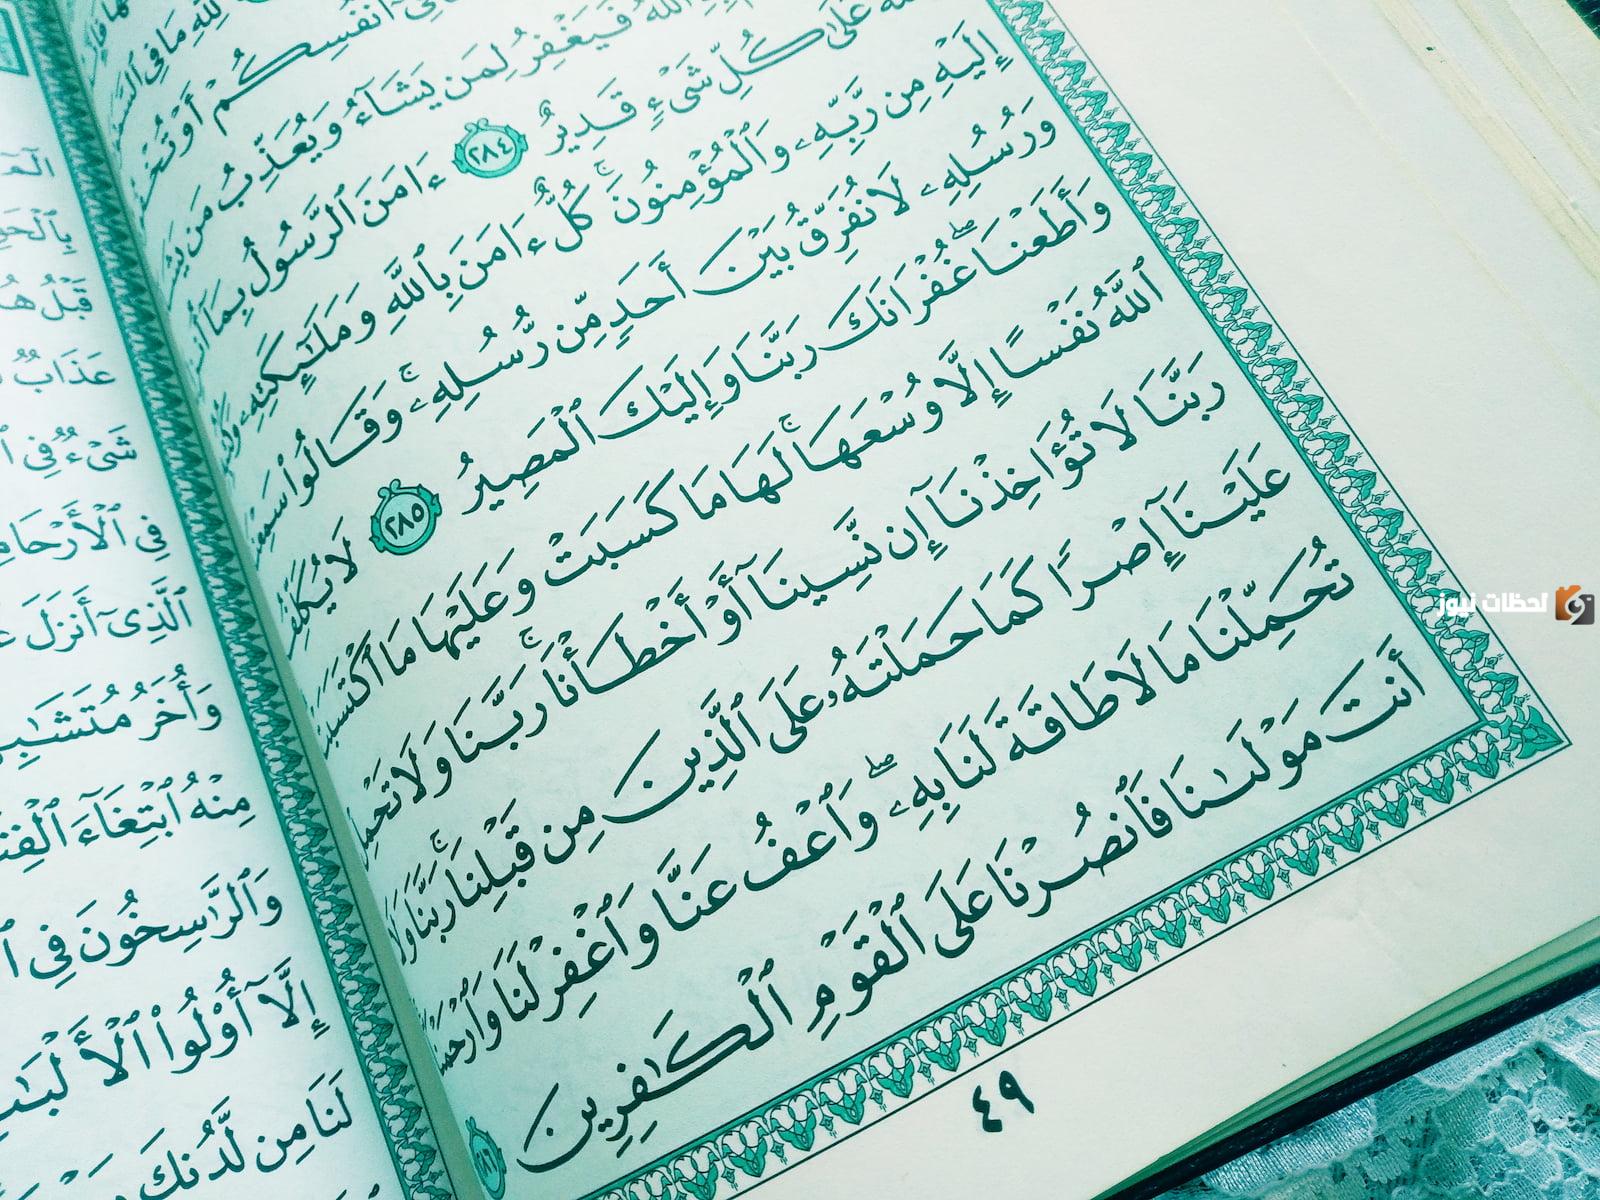 لِّلَّهِ مَا فِي
أَنفُسِكُمْ أَوْ
ٱللَّهُ فَيَغْفِرُ لِمَن يَشَآءُ وَيُعَذِّبُ مَن
عَلَىٰ كُلِّ شَىْءٍ قَدِيرٌ ٢٨٤ ءَامَنَ ٱلرَّسُولُ بِمَآ
إِلَيْهِ مِن رَّبِّهِۦ وَٱلْمُؤْمِنُونَ ۚ كُلٌّ ءَامَنَ بِٱللَّهِ وَمَلَٰٓئِكَتِهِۦ
وَرُسُلِهِۦ لَا نُفَرِّقُ بَيْنَ أَحَدٍ مِّن رُّسُلِهِۦ ۚ وَقَالُوا۟
وَأَطَعْنَا ۖ غُفْرَانَكَ رَبَّنَا وَإِلَيْكَ ٱلْمَصِيرُ ٢٨٥ لَا يُكَلِّفُ
ٱللَّهُ نَفْسًا إِلَّا وُسْعَهَا ۚ لَهَا مَا كَسَبَتْ وَعَلَيْهَا مَا ٱكْتَسَبَتْ
رَبَّنَا لَا تُؤَاخِذْنَآ إِن نَّسِينَآ أَوْ أَخْطَأْنَا ۚ رَبَّنَا وَلَا تَحْمِلْ
عَلَيْنَآ إِصْرًا كَمَا حَمَلْتَهُۥ عَلَى ٱلَّذِينَ مِن قَبْلِنَا ۚ رَبَّنَا وَلَا
تُحَمِّلْنَا مَا لَا طَاقَةَ لَنَا بِهِۦ ۖ وَٱعْفُ عَنَّا وَٱغْفِرْ لَنَا وَٱرْحَمْنَآ
أَنتَ مَوْلَىٰنَا فَٱنصُرْنَا عَلَى ٱلْقَوْمِ ٱلْكَٰفِرِينَ
٤٩
عَذَابٌ
شَىْءٌ فِي
فِي ٱلْأَرْحَامِ
ٱلَّذِىٓ أَنزَلَ
وَأُخَرُ
مِنْهُ ٱبْتِغَآءَ
وَٱلرَّٰسِخُونَ فِي
إِلَّآ أُو۟لُوا۟ ٱلْأَلْبَٰبِ
لَنَا مِن لَّدُنكَ
لحظات نيوز